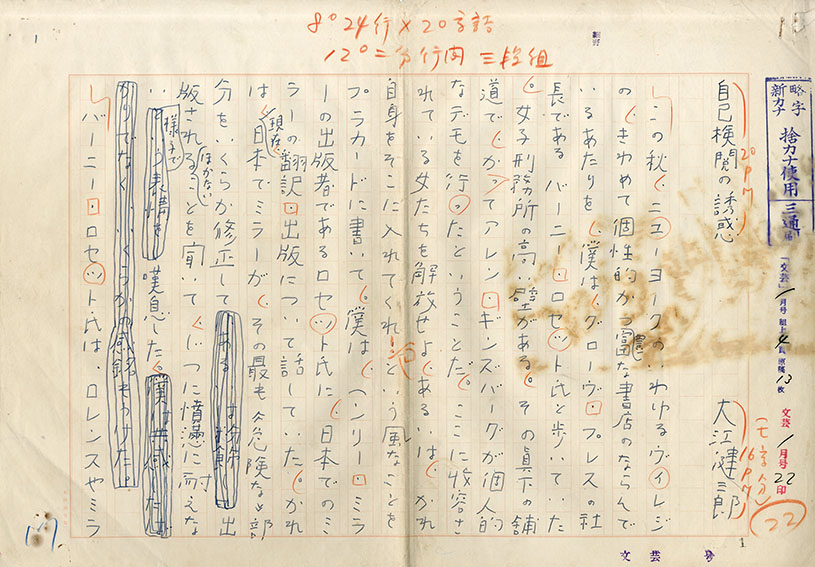 8° 24行×20字詰
12° 二分行間 三段組
略字
新カナ
捨カナ使用
三通
「文芸」
月号
文芸
1月号22
印
22
自己検閲の誘惑
20P
大江健三郎
16P
この秋、ニューヨークのいわゆるヴィレジ
の、きわめて個性的かつ豊富な書店のならんで
いるあたりを、僕は、グローヴ・プレスの社
長である バーニー・ロセット氏と歩いていた
。女子刑務所の高い壁がある。その真下の舗
道で、かつてアレン・ギンズバーグが個人的
なデモを行ったということだ。ここに収容さ
れている女たちを解放せよ、あるいは、かれ
自身をそこに入れてくれ、という風なことを
プラカードに書いて。僕は、ヘンリー・ミラ
ーの出版者であるロセット氏に、日本でのミ
ラーの翻訳・出版について話していた。かれ
は、現在、日本でミラーが、その最も危険な部
分をいくらか修正して出
版されるほかないことを聞いて、じつに憤懣に耐えな
い様子で嘆息した。
バーニー・ロセット氏は、ロレンスやミラ
1
文芸 号